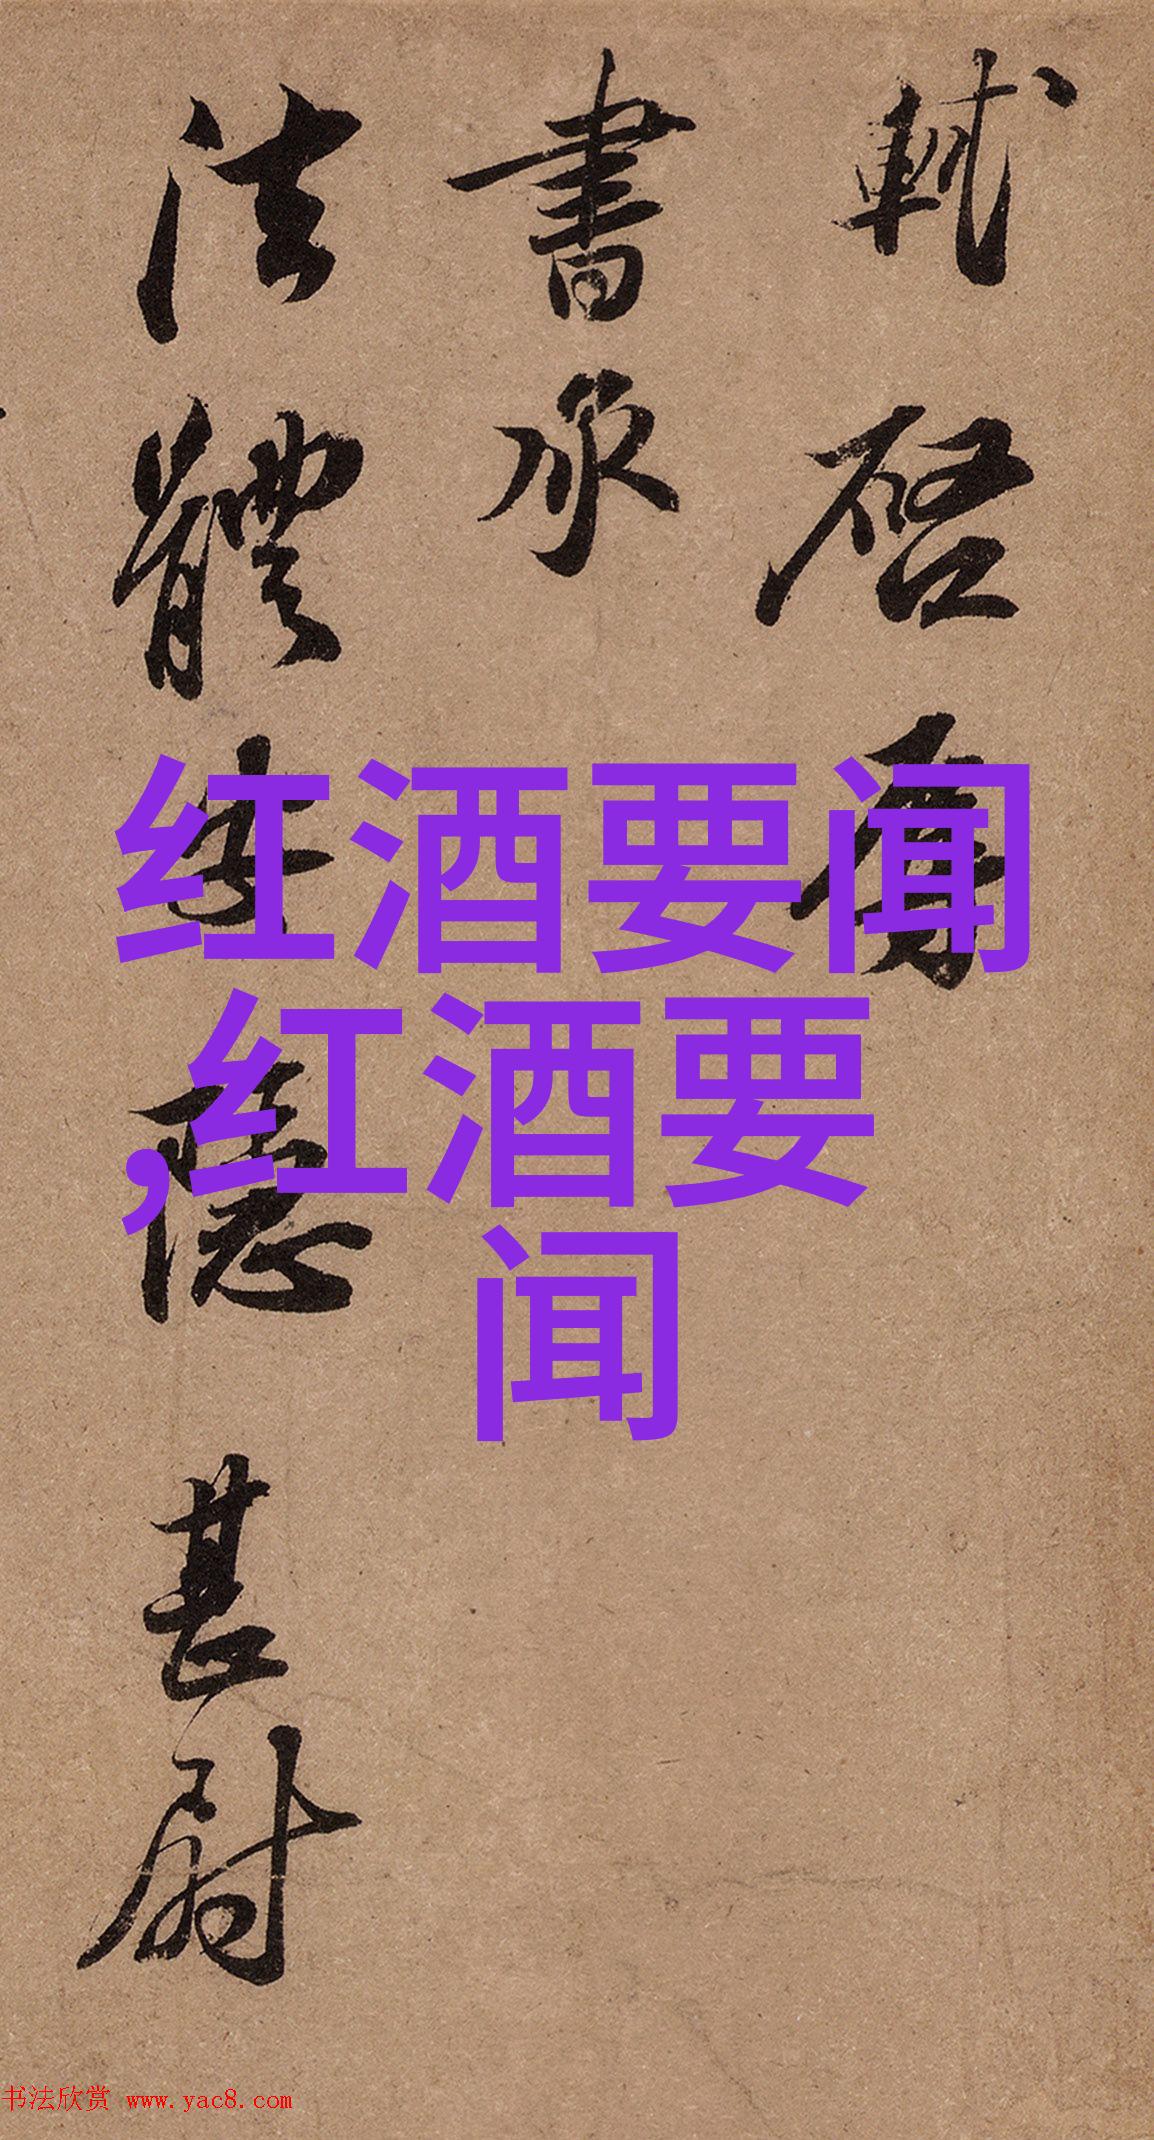 軾啓
書承
法體安隱甚尉
红酒要闻
,红酒要
闻
书法欣赏 www.yac8.com